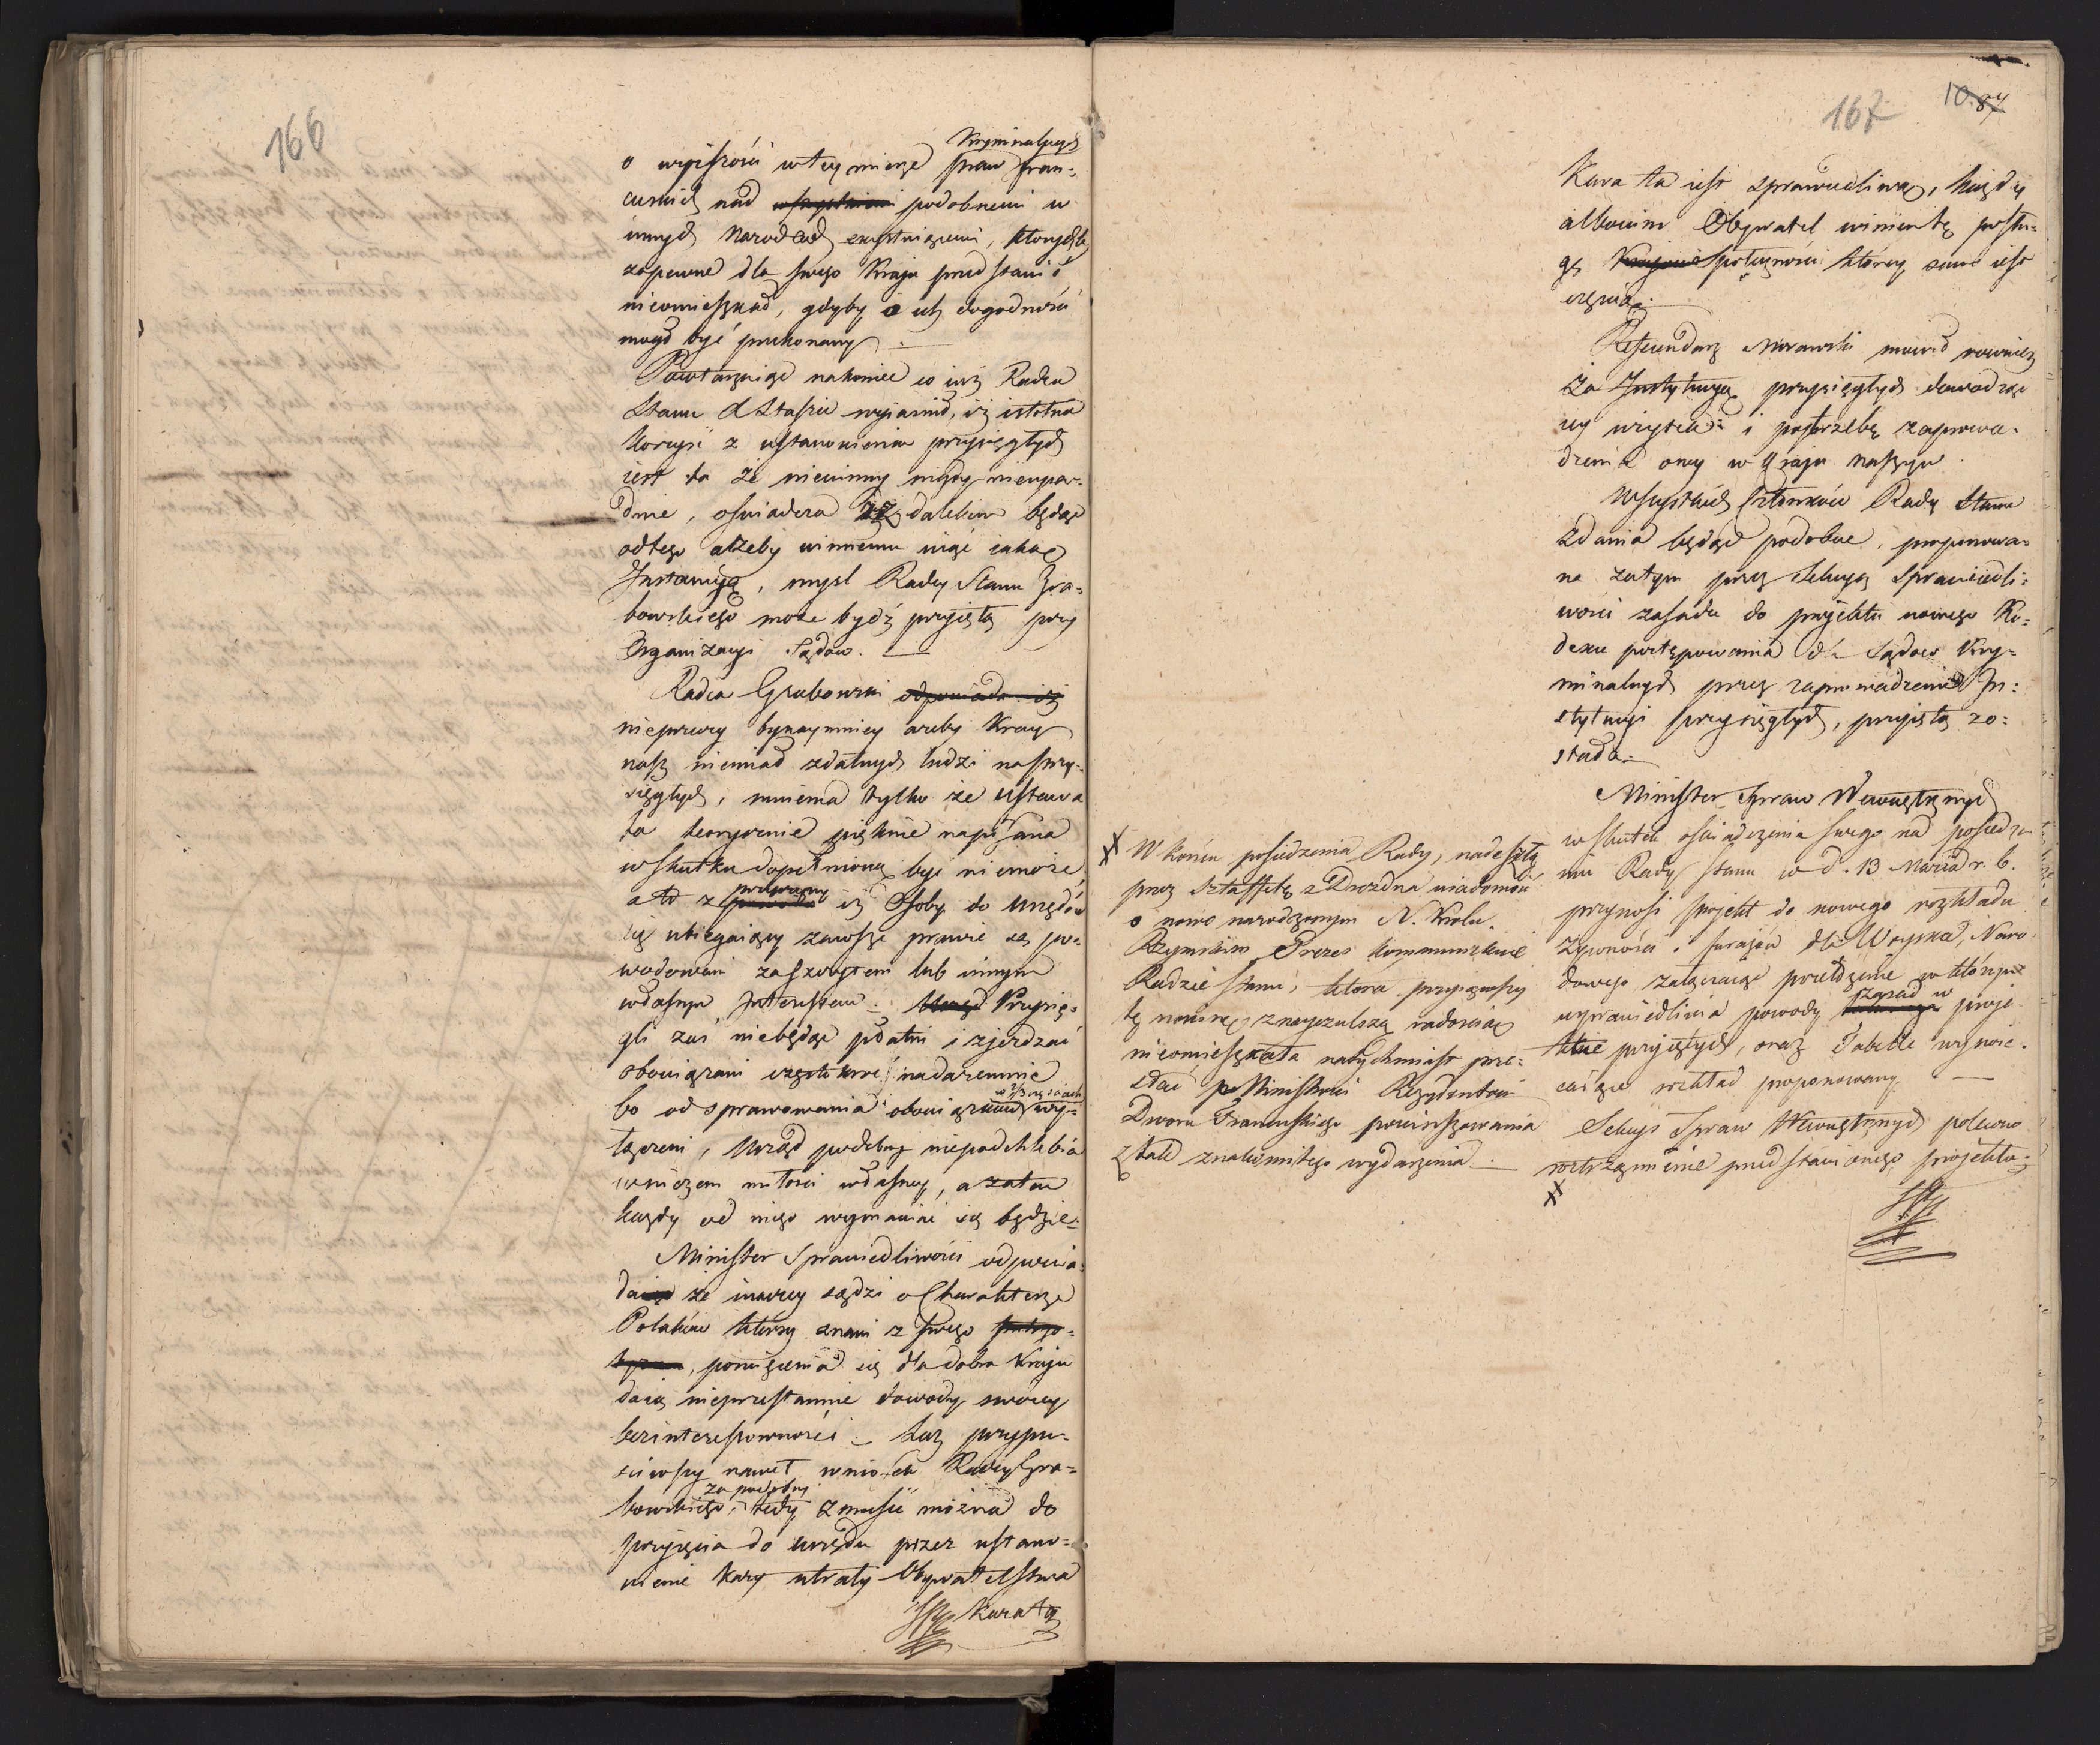 166
Kryminalnych
o wyższości w tey mierze praw fran-
cuskich nad wszystkiemi podobnemi w
innych Narodach exystuiącemi, którychby
zapewne dla swego Kraju przedstawić
nieomieszkał, gdyby o ich dogodności
mógł być przekonany.
Powtarzaiąc nakoniec co iuż Radca
Stanu Xdz Staszic wyiaśnił, iż istotna
korzyść z ustanowienia przysięgłych
iest ta że niewinny nigdy nieupa-
dnie, oświadcza iż dalekim będąc
od tego ażeby winnemu uiąć iaką
Instancyą, myśl Radcy Stanu Gra-
bowskiego może bydź przyięta przy
Organizacyi Sądów.
Radca Grabowski odpowiada iż
nieprzeczy bynaymniey ażeby Kray
nasz niemiał zdatnych ludzi na przy-
sięgłych, mniema tylko że ustawa
ta teorycznie pięknie napisana
w skutku dopełnioną być niemoże,
przyczyny
a to z iż Osoby do urzędów
się ubiegaiący zawsze prawie są po-
wodowani zaszczytem lub innym
własnym Interessem. Urząd Przysię-
gli zaś niebędąc płatni i zjeżdzać
obowiązani częstokroć nadaremnie
w 2/3 częściach
bo od sprawowania obowiązków wy-
łączeni, Urząd podobny niepodchlebia
w niczem miłości własney, a zatem
każdy od niego wymawiać się będzie.
Minister Sprawiedliwości odpowia-
daiąc że inaczey sądzi o Charakterze
Polaków którzy znani z swego patryo-
tyzmu, poświęcenia się dla dobra Kraju
daią nieprzestannie dowody swoiey
bezinteressowności. Lecz przypu-
ściwszy nawet wniosek Radcy Gra-
za podobny
bowskiego, tedy zmusić można do
przyięcia do urzędu przez ustano-
wienie kary utraty Obywatelstwa
Kara ta
167
10.87
Kara ta iest sprawiedliwą, każdy
albowiem Obywatel winien tę posłu-
gę Krajowi Społeczności którey sam iest
częścią.
Referendarz Morawski mówił również
za Instytucyą przysięgłych dowodząc
iey użytek i potrzebę zaprowa-
dzenia oney w Kraju naszym.
Wszystkich Członków Rady Stanu
zdania będąc podobne, proponowa-
na zatym przez Sekcyą Sprawiedli-
wości zasada do projektu nowego Ko-
dexu postępowania dla Sądów Kry-
minalnych przez zaprowadzenie In-
stytucyi przysięgłych, przyięta zo-
stała.
Minister Spraw Wewnętrznych
w skutek oświadczenia swego na posiedze-
niu Rady Stanu w d. 13 Marca r. b.
przynosi projekt do nowego rozkładu
żywności i furażów dla Woyska Naro-
dowego załączaiąc przełożenie w którym
zasad w
usprawiedliwia powody proje-
kcie przyiętych, oraz Tabelle wyświe-
caiące rozkład proponowany.
Sekcyi Spraw Wewnętrznych polecono
roztrząśnienie przedstawionego projektu.
X
X W końcu posiedzenia Rady, nadeszłą
przez Sztaffetę z Drezna wiadomość
o nowo narodzonym N. Królu
Rzymskim Prezes kommunikuie
Radzie Stanu, która przyiąwszy
tę nowinę z nayczulszą radością
nieomieszkała natychmiast prze-
słać JP Ministrowi Rezydentowi
Dworu Francuskiego powinszowania
z tak znakomitego wydarzenia.